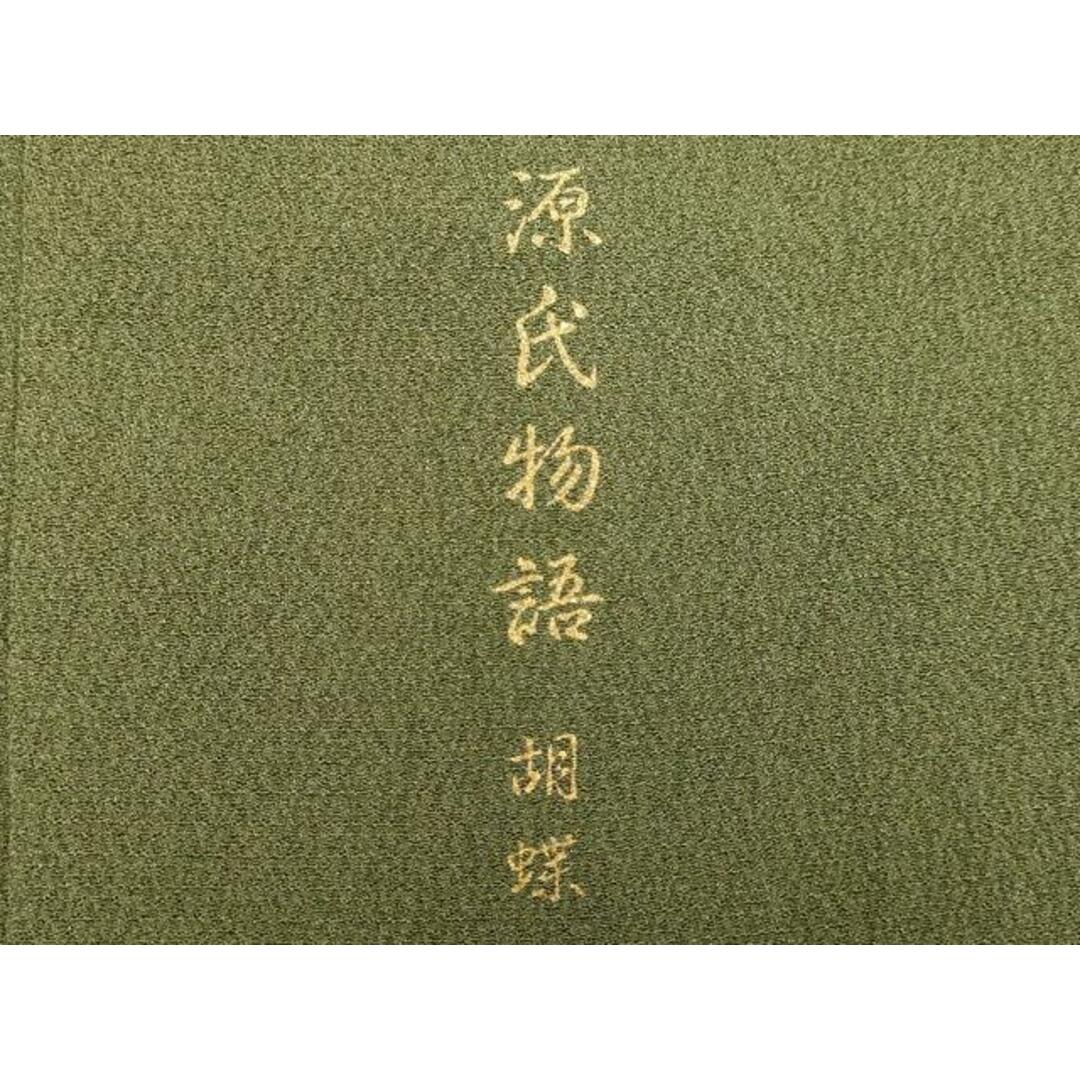 源氏物語 胡蝶